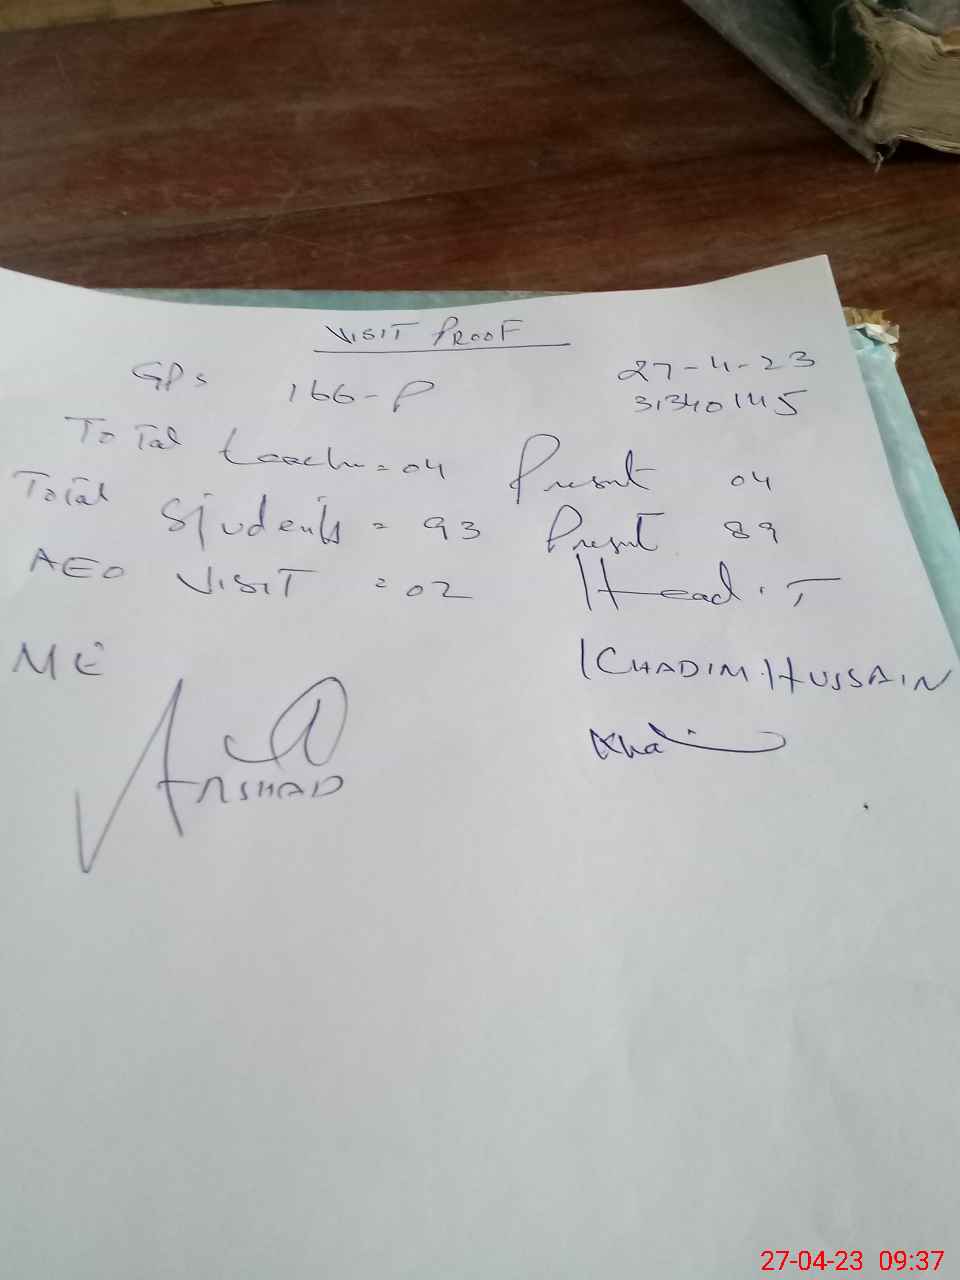 VISIT PROOF
GPS 166-P 27-4-23
31340145
Total teach = 04 Present 04
Total Students = 93 Present 89
AEO VISIT = 02 Head.T
ME KHADIM HUSSAIN
ARSHAD Khadim
27-04-23 09:37